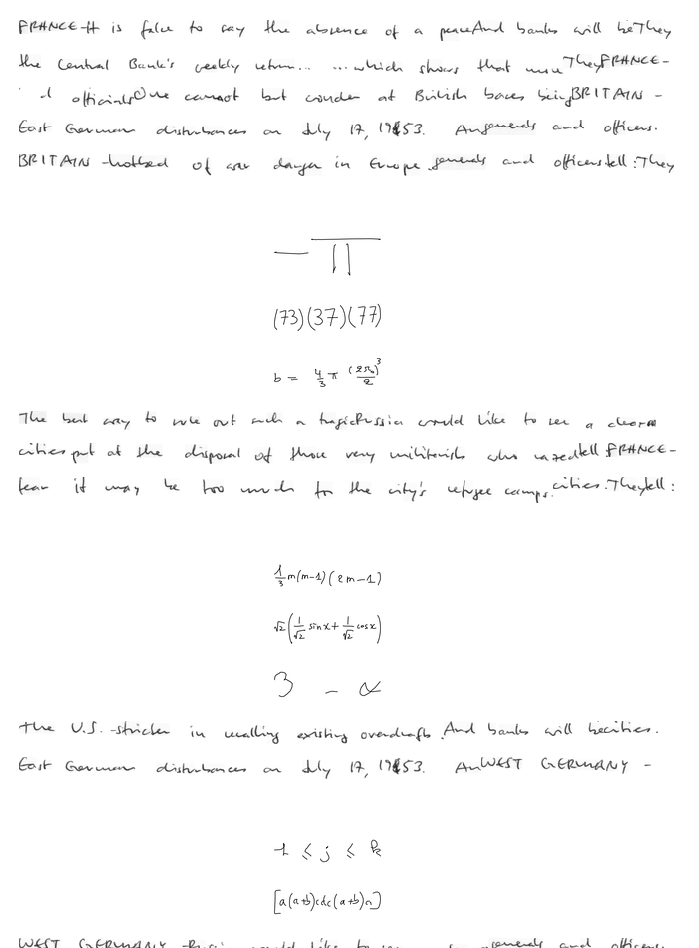 FRANCE-It is false to say the absence of a peaceAnd banks will beThey
the Central Bank's weekly return... ...which shows that moreTheyFRANCE-
d officialsOne cannot but wonder at British bases beingBRITAIN-
East German disturbances on July 17, 1953. Angenerals and officers.
BRITAIN-hotbed of war danger in Europe.generals and officerstell:They
(73)(37)(77)
b = \frac{4}{3} π
The best way to rule out such a tragicRussia would like to see a
cities put at the disposal of those very militarists who razedtell FRANCE-
fear it may be too much for the city's refugee camps.cities.Theytell:
\frac{1}{3}m(m-1)(2m-1)
√2(\frac{1}{√2} sin x + \frac{1}{√2} cos x)
3 - α
the U.S.-stricter in walling existing overdrafts.And banks will becities.
East German disturbances on July 17, 1953. AnWEST GERMANY-
≤ j ≤ k
[a(a+b)cdc(a+b)a]
WEST GERMANY would like to generals and officers.